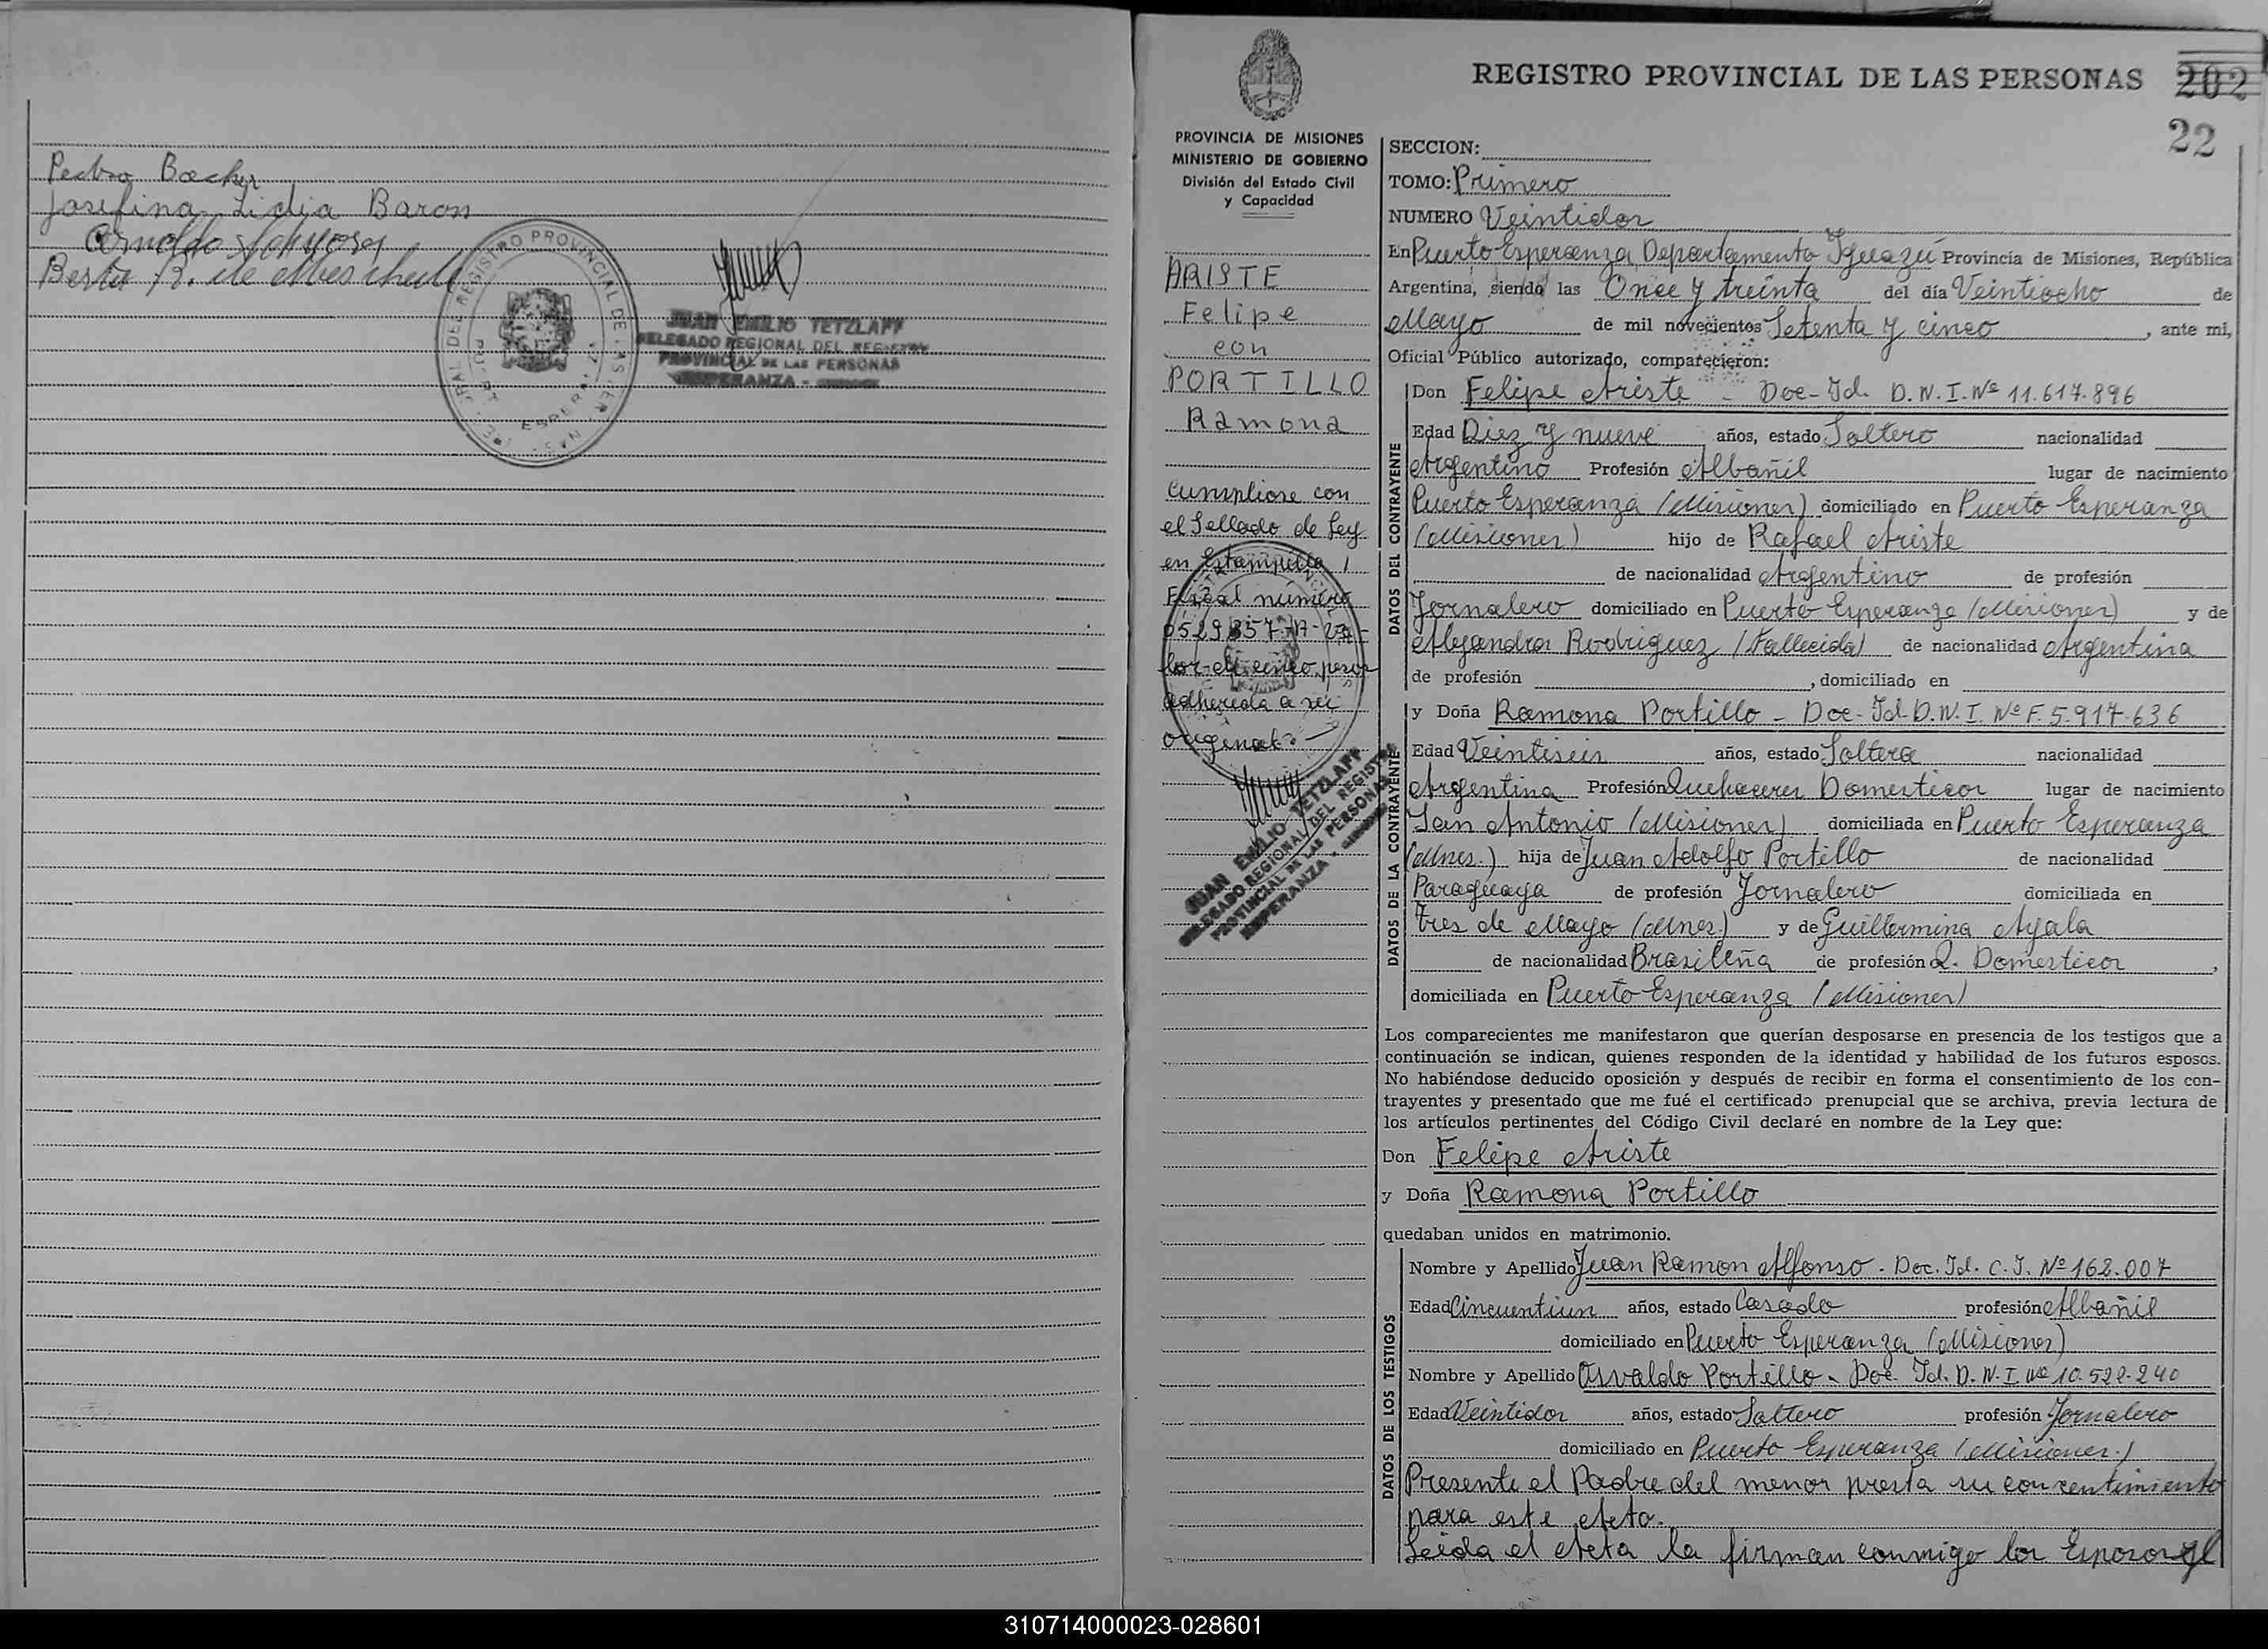 Pedro Backer
Josefina Lidia Baron
Arnoldo
Berta R. de
JUAN EMILIO TETZLAFF
DELEGADO REGIONAL DEL REGISTRO
PROVINCIAL DE LAS PERSONAS
ESPERANZA -
REGISTRO PROVINCIAL DE LAS PERSONAS 202
22
PROVINCIA DE MISIONES
MINISTERIO DE GOBIERNO
División del Estado Civil
y Capacidad
ARISTE
Felipe
con
PORTILLO
Ramona
Cumpliose con
el Sellado de Ley
en Estampilla
Fiscal número
adherida a su
original
JUAN EMILIO TETZLAFF
DELEGADO REGIONAL DEL REGISTRO
PROVINCIAL DE LAS PERSONAS
ESPERANZA -
SECCION:
TOMO: Primero
NUMERO Veintidos
En Puerto Esperanza Departamento Iguazú Provincia de Misiones, República
Argentina, siendo las Once y treinta del día Veintiocho de
Mayo de mil novecientos Setenta y cinco, ante mi,
Oficial Público autorizado, comparecieron:
DATOS DEL CONTRAYENTE
Don Felipe Ariste - Doc-Id. D.N.I. Nº 11.617.896
Edad Diez y nueve años, estado Soltero nacionalidad
Argentino Profesión Albañil lugar de nacimiento
Puerto Esperanza (Misiones) domiciliado en Puerto Esperanza
(Misiones) hijo de Rafael Ariste
de nacionalidad Argentino de profesión
Jornalero domiciliado en Puerto Esperanza (Misiones) y de
Alejandra Rodriguez (Fallecida) de nacionalidad Argentina
de profesión , domiciliado en
DATOS DE LA CONTRAYENTE
y Doña Ramona Portillo - Doc-Id. D.N.I. Nº F.5.917.636
Edad Veintiseis años, estado Soltera nacionalidad
Argentina Profesión Quehaceres Domesticos lugar de nacimiento
San Antonio (Misiones) domiciliada en Puerto Esperanza
(Mnes.) hija de Juan Adolfo Portillo de nacionalidad
Paraguaya de profesión Jornalero domiciliada en
Tres de Mayo (Mnes.) y de Guillermina Ayala
de nacionalidad Brasileña de profesión Q. Domesticos,
domiciliada en Puerto Esperanza (Misiones)
Los comparecientes me manifestaron que querían desposarse en presencia de los testigos que a
continuación se indican, quienes responden de la identidad y habilidad de los futuros esposos.
No habiéndose deducido oposición y después de recibir en forma el consentimiento de los con-
trayentes y presentado que me fué el certificado prenupcial que se archiva, previa lectura de
los artículos pertinentes del Código Civil declaré en nombre de la Ley que:
Don Felipe Ariste
y Doña Ramona Portillo
quedaban unidos en matrimonio.
DATOS DE LOS TESTIGOS
Nombre y Apellido Juan Ramon Alfonso - Doc. Id. C.I. Nº 162.007
Edad Cincuentiun años, estado Casado profesión Albañil
domiciliado en Puerto Esperanza (Misiones)
Nombre y Apellido Osvaldo Portillo - Doc. Id. D.N.I. Nº 10.522.240
Edad Veintidos años, estado Soltero profesión Jornalero
domiciliado en Puerto Esperanza (Misiones.)
Presente el Padre del menor presta su concentimiento
para este acto.
Leida el Acta la firman conmigo los Esposos y el
310714000023-028601